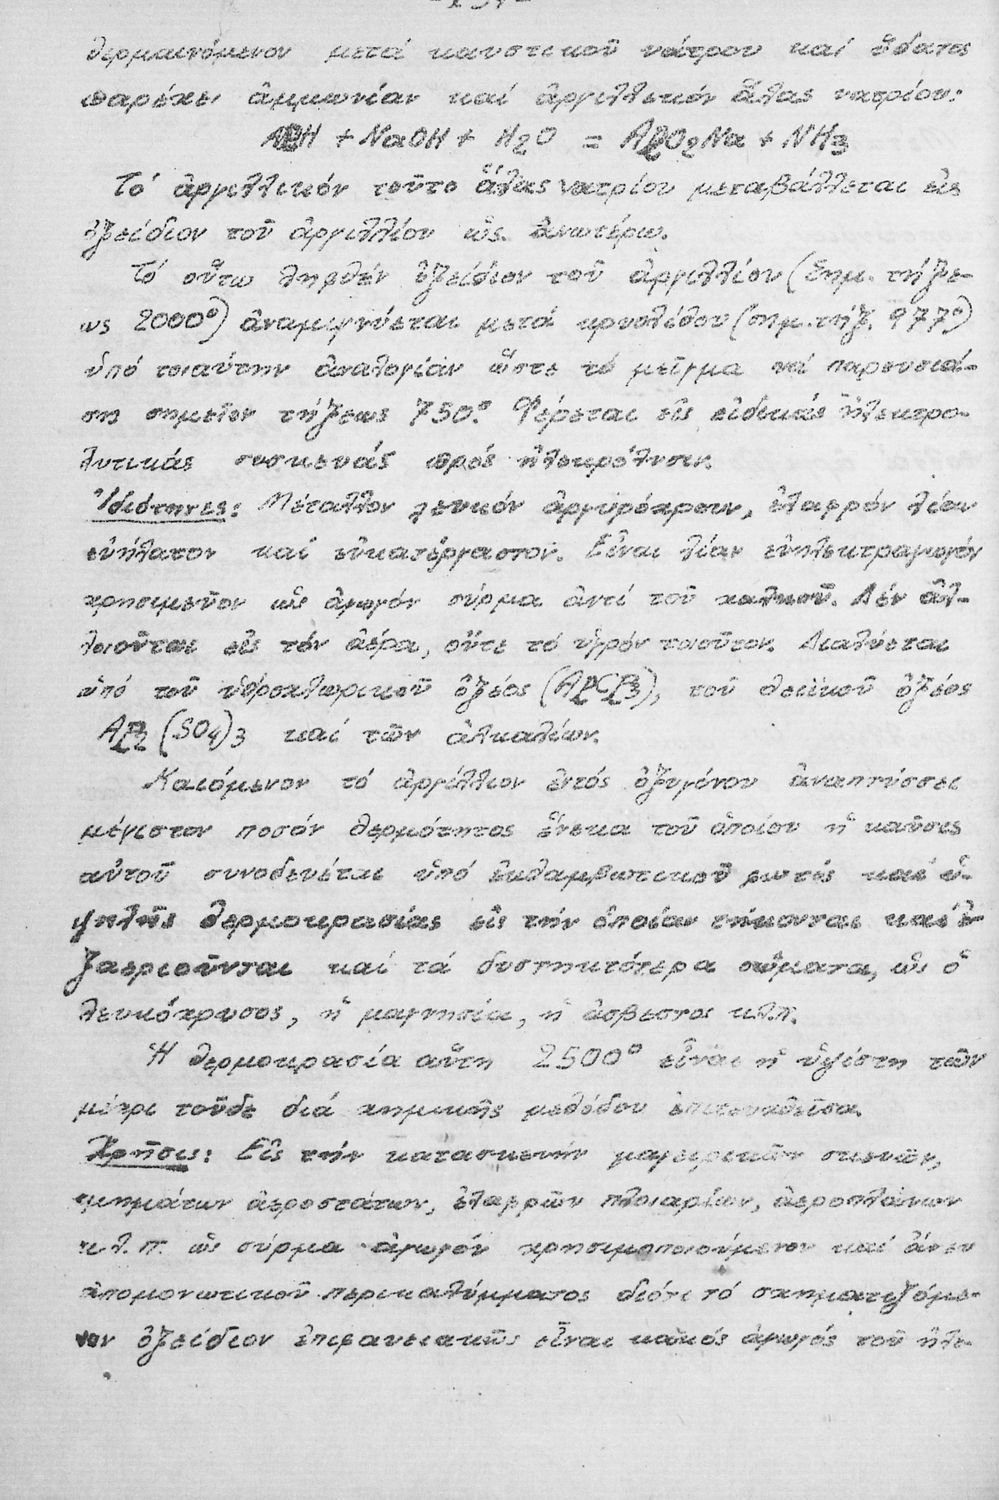 θερμαινόμενον μετά καυστικοῦ νάτρου καί ὕδατος
παρέχει ἀμμωνίαν καί ἀργιλλικόν ἅλας νατρίου:
AlN + NaOH + H2O = AlO2Na + NH3
Τό ἀργιλλικόν τοῦτο ἅλας νατρίου μεταβάλλεται εἰς
ὀξείδιον τοῦ ἀργιλλίου ὡς ἀνωτέρω.
Τό οὕτω ληφθέν ὀξείδιον τοῦ ἀργιλλίου (Σημ. τήξε-
ως 2000°) ἀναμιγνύεται μετά κρυολίθου (σημ. τήξ. 977°)
ὑπό τοιαύτην ἀναλογίαν ὥστε τό μεῖγμα νά παρουσιά-
ση σημεῖον τήξεως 750° Φέρεται εἰς εἰδικάς ἠλεκτρο-
λυτικάς συσκευάς πρός ἠλεκρόλυσιν.
Ἰδιότητες: Μέταλλον λευκόν ἀργυρόχρουν, ἐλαφρόν λίαν
εὐήλατον καί εὐκατέργαστον. Εἶναι λίαν εὐηλεκτραγωγόν
χρησιμεῦον ὡς ἀγωγόν σύρμα ἀντί τοῦ χαλκοῦ. Δέν ἀλ-
λοιοῦται εἰς τόν ἀέρα, οὔτε τό ὑγρόν τοιοῦτον. Διαλύεται
ὑπό τοῦ ὑδροχλωρικοῦ ὀξέος (AlCl3), τοῦ θειϊκοῦ ὀξέος
Al2 (SO4)3 καί τῶν ἀλκαλίων.
Καιόμενον τό ἀργίλλιον ἐντός ὀξυγόνου ἀναπτύσσει
μέγιστον ποσόν θερμότητος ἕνεκα τοῦ ὁποίου ἡ καῦσις
αὐτοῦ συνοδεύεται ὑπό ἐκλαμβωτικοῦ φωτός καί ὑ-
ψηλῆς θερμοκρασίας εἰς τήν ὁποίαν τήκονται καί ἐ-
ξαεριοῦνται καί τά δυστηκτότερα σώματα, ὡς ὁ
λευκόχρυσος, ἡ μαγνησία, ἡ ἀσβεστος κ.λ.π.
Ἡ θερμοκρασία αὕτη 2500° εἶναι ἡ ὑψίστη τῶν
μέχρι τοῦδε διά χημικῆς μεθόδου ἐπιτευχθεῖσα.
Χρῆσις: Εἰς τήν κατασκευήν μαγειρικῶν σκευῶν,
τμημάτων ἀεροστάτων, ἐλαφρῶν πλοιαρίων, ἀεροπλάνων
κ.λ.π. ὡς σύρμα ἀγωγόν χρησιμοποιούμενον καί ἄνευ
ἀπομονωτικοῦ περικαλύμματος διότι τό σχηματιζόμε-
νον ὀξείδιον ἐπιφανειακῶς εἶναι κακός ἀγωγός τοῦ ἠλε-